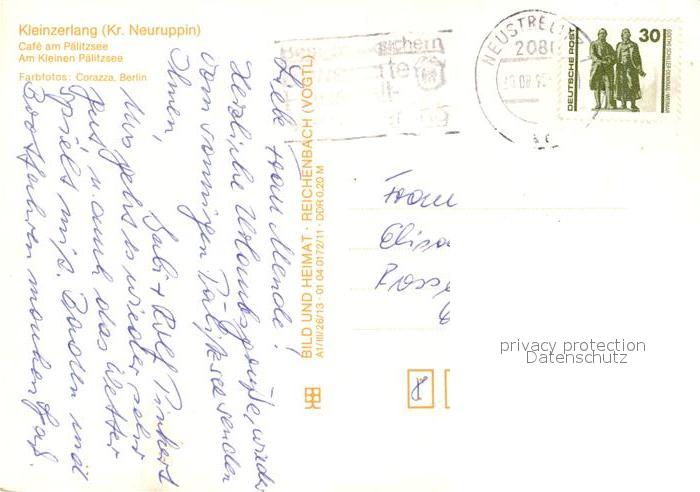 Kleinzerlang (Kr. Neuruppin)
Café am Pälitzsee
Am Kleinen Pälitzsee
Farbfotos: Corazza, Berlin
Liebe Frau Mende!
Herzliche Urlaubsgrüße, wieder
vom sonnigen Pälitzsee senden
Ihnen,
Gabi + Rolf
Uns geht's wieder sehr
gut u. auch das Wetter
spielt mit. Baden und
Bootfahren machen Spaß.
BILD UND HEIMAT · REICHENBACH (VOGTL)
A1/III/26/13 · 01 04 0172/11 · DDR 0,20 M
NEUSTREL
208
DEUTSCHE POST
30
GOETHE-SCHILLER-DENKMAL · WEIMAR
Frau
Elisa
privacy protection
Datenschutz